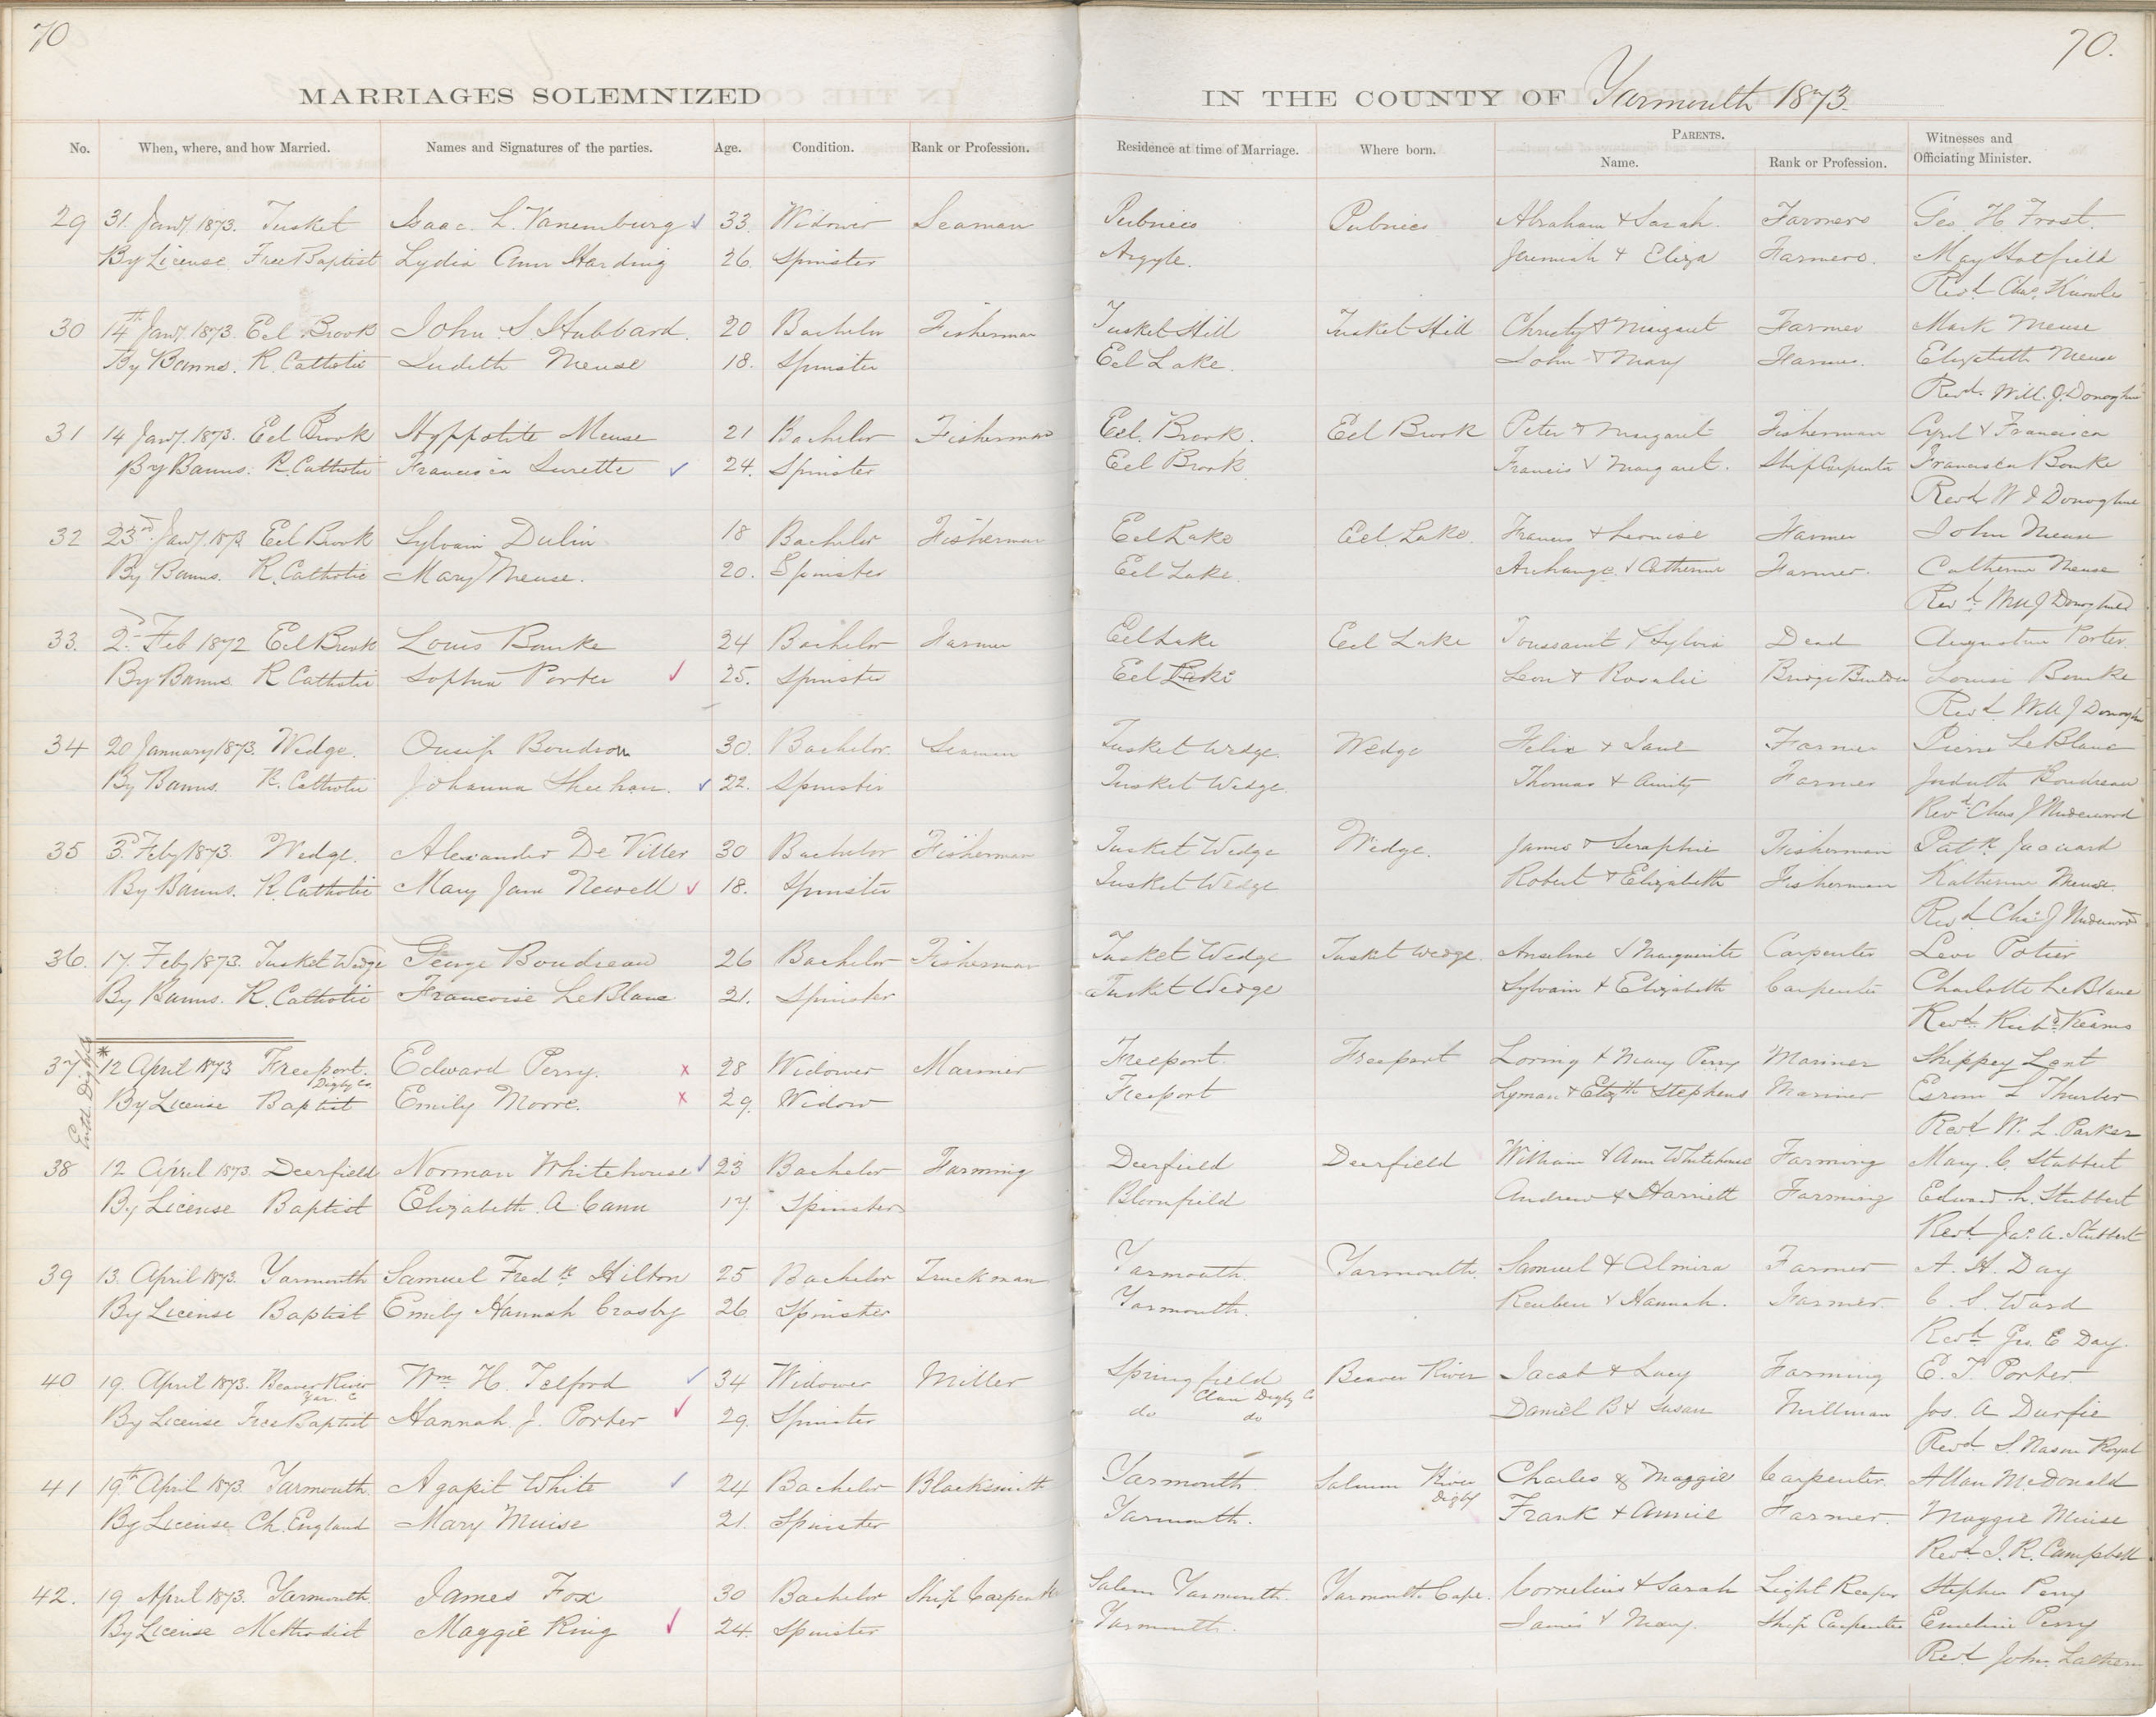 70
70.
MARRIAGES SOLEMNIZED IN THE COUNTY OF Yarmouth 1873.
No. When, where, and how Married. Names and Signatures of the parties. Age. Condition. Rank or Profession. Residence at time of Marriage. Where born. PARENTS. Name. Rank or Profession. Witnesses and Officiating Minister.
29 31. Jany 1873. Tusket Isaac L. Vanemburg 33. Widower Seaman Pubnico Pubnico Abraham & Sarah. Farmers Geo. H. Frost.
By License Free Baptist Lydia Ann Harding 26. Spinster Argyle. Jeremiah & Eliza Farmers. May Hatfield
Revd. Chas. Knowles
30 14th Jany 1873. Eel Brook John S. Hubbard. 20 Bachelor Fisherman Tusket Hill Tusket Hill Christy & Margaret Farmer Mark Meuse
By Banns. R. Catholic Judith Meuse 18. Spinster Eel Lake. John & Mary Farmer. Elizabeth Meuse
Revd. Will. J. Donoghue
31 14 Jany. 1873. Eel Brook Hyppolite Meuse 21 Bachelor Fisherman Eel Brook. Eel Brook Peter & Margaret Fisherman Cyril & Francisca
By Banns. R. Catholic Francisca Surette 24. Spinster Eel Brook Francis & Margaret. Ship Carpenter Bourke
Revd W J Donoghue
32 23rd Jany. 1873 Eel Brook Sylvain Dulin 18 Bachelor Fisherman Eel Lake Eel Lake. Francis & Louise Farmer John Meuse
By Banns. R. Catholic Mary Meuse. 20. Spinster Eel Lake. Archange & Catherine Farmer. Catherine Meuse
Revd. J Donoghue
33. 2d Feb 1872 Eel Brook Louis Bourke 24 Bachelor Farmer Eel Lake Eel Lake Toussaint & Sylvia Dead Augustin Porter
By Banns. R Catholic Sophia Porter 25. Spinster Eel Lake Leon & Rosalie Bridge Builder Louise Bourke
Revd. Will J Donoghue
34 20 January 1873. Wedge. Ousip Boudrou 30. Bachelor. Seaman Tusket Wedge. Wedge Felix & Jane Farmer Pierre LeBlanc
By Banns. R. Catholic Johanna Sheehan. 22. Spinster Tusket Wedge. Thomas & Farmer Judith Boudreau
Revd. Chas J Underwood
35 3d. Feby 1873. Wedge. Alexander De Viller 30 Bachelor Fisherman Tusket Wedge Wedge. James & Seraphie Fisherman Patk Jacquard
By Banns. R. Catholic Mary Jane Newell 18. Spinster Tusket Wedge Robert & Elizabeth Fisherman Katherine Meuse.
Revd Chas J Underwood
36. 17. Feby 1873. Tusket Wedge George Boudreau 26 Bachelor Fisherman Tusket Wedge Tusket Wedge. Anselme & Marguerite Carpenter Levi Potier
By Banns. R. Catholic Francoise LeBlanc 21. Spinster Tusket Wedge Sylvain & Elizabeth Carpenter Charlotte LeBlanc
Revd. Richd. Kearns
37. * 12 April 1873 Freeport. Edward Perry. x 28 Widower Mariner Freeport. Freeport Loring & Mary Perry Mariner Shippey Lent
Digby Co.
By License Baptist Emily Moore. x 29. Widow Freeport Lyman & Elizth Stephens Mariner Esrom L Thurber
Revd. W. L. Parker
Entd. Digby Co
38 12 April 1873. Deerfield Norman Whitehouse 23 Bachelor Farming Deerfield Deerfield William & Ann Whitehouse Farming Mary. C. Stubbert
By License Baptist Elizabeth A Cann 17. Spinster Bloomfield Andrew & Harriett Farming Edward L. Stubbert
Revd. Jas. A. Stubbert
39 13. April 1873. Yarmouth Samuel Fredk Hilton 25 Bachelor Truckman Yarmouth. Yarmouth. Samuel & Almira Farmer A. H. Day
By License Baptist Emily Hannah Crosby 26 Spinster Yarmouth. Reuben & Hannah. Farmer. C. S. Ward
Revd. Geo. E Day.
40 19. April 1873. Beaver River Wm. H. Telford 34 Widower Miller Springfield Beaver River Jacob & Lucy Farming E. T. Porter
Yar. C Clare Digby Co
By License Free Baptist Hannah J. Porter 29. Spinster do do Daniel B & Susan Millman Jos. A Durfie
Revd. S. Nason Royal
41 19th April 1873. Yarmouth. Agapit White 24 Bachelor Blacksmith Yarmouth. Salmon River Charles & Maggie Carpenter. Allan McDonald
Digby
By License Ch. England Mary Muise 21. Spinster Yarmouth. Frank & Annie Farmer. Maggie Muise
Revd. J. R. Campbell
42. 19 April 1873. Yarmouth. James Fox 30 Bachelor Ship Carpenter Salem Yarmouth. Yarmouth Cape. Cornelius & Sarah Light Keeper Stephen Perry
By License Methodist Maggie King 24. Spinster Yarmouth. James & Mary. Ship Carpenter Emeline Perry
Revd John Lathern